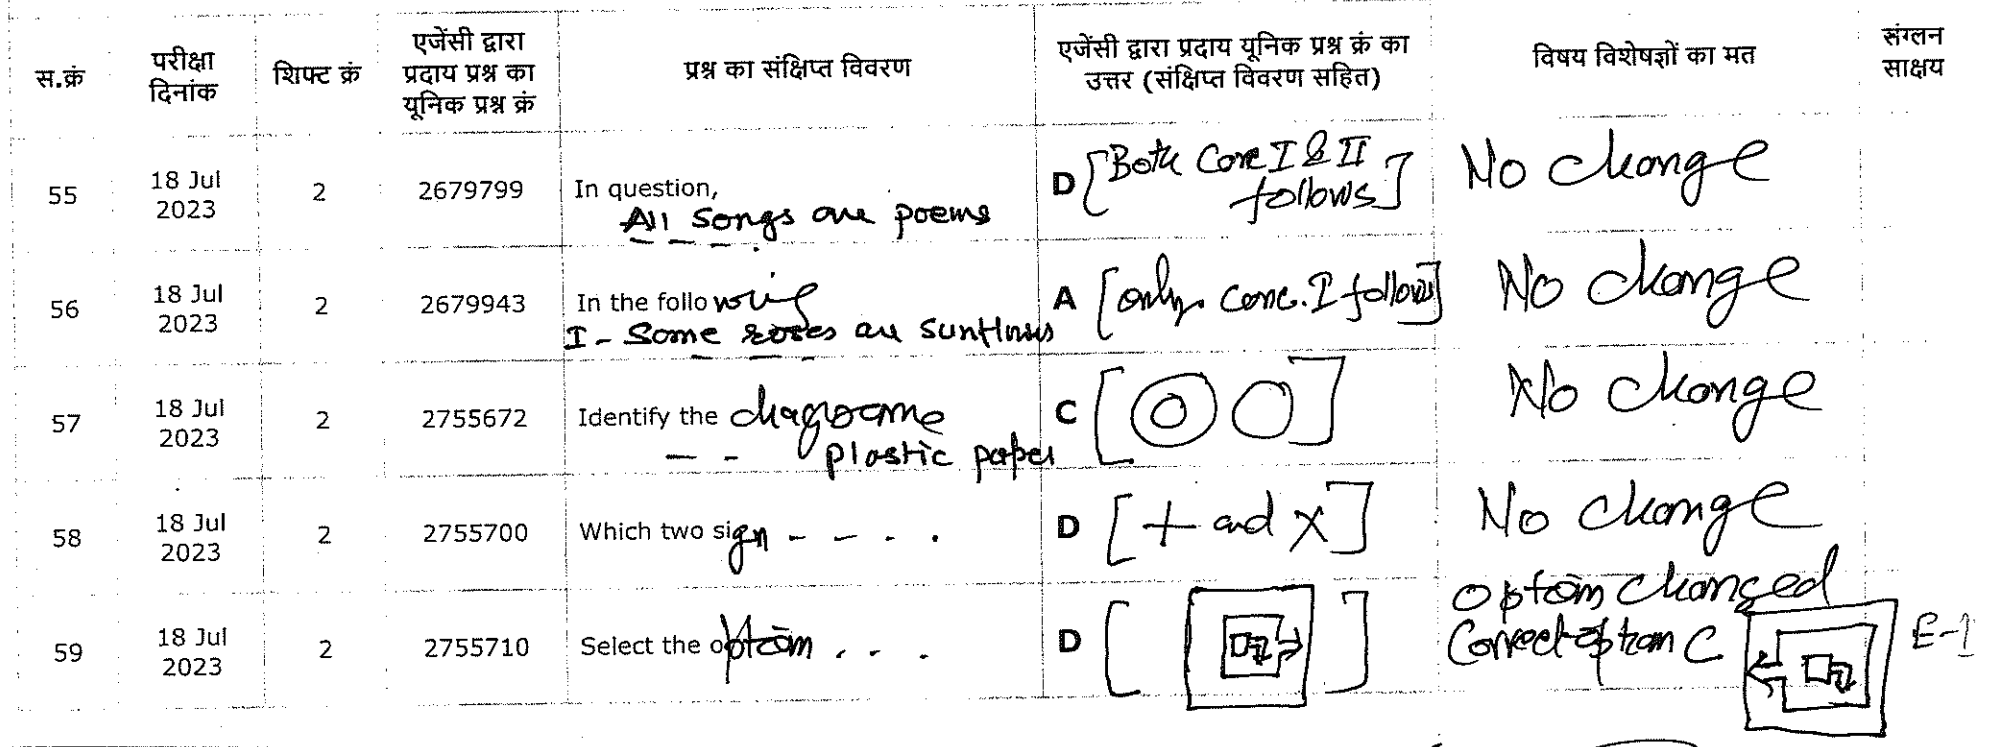 स.क्रं
परीक्षा
दिनांक
शिफ्ट क्रं
एजेंसी द्वारा
प्रदाय प्रश्न का
यूनिक प्रश्न क्रं
प्रश्न का संक्षिप्त विवरण
एजेंसी द्वारा प्रदाय यूनिक प्रश्न क्रं का
उत्तर (संक्षिप्त विवरण सहित)
विषय विशेषज्ञों का मत
संग्लन
साक्षय
55
18 Jul
2023
2
2679799
In question,
All songs are poems
D [Both Conc I & II
follows]
No change
56
18 Jul
2023
2
2679943
In the following
I - Some roses are sunflowers
A [only conc. I follows]
No change
57
18 Jul
2023
2
2755672
Identify the diagrame
- - plastic paper
C [ ]
No change
58
18 Jul
2023
2
2755700
Which two sign - - - .
D [+ and ×]
No change
59
18 Jul
2023
2
2755710
Select the option . - .
D [ ]
option changed
Correct option C
E-1